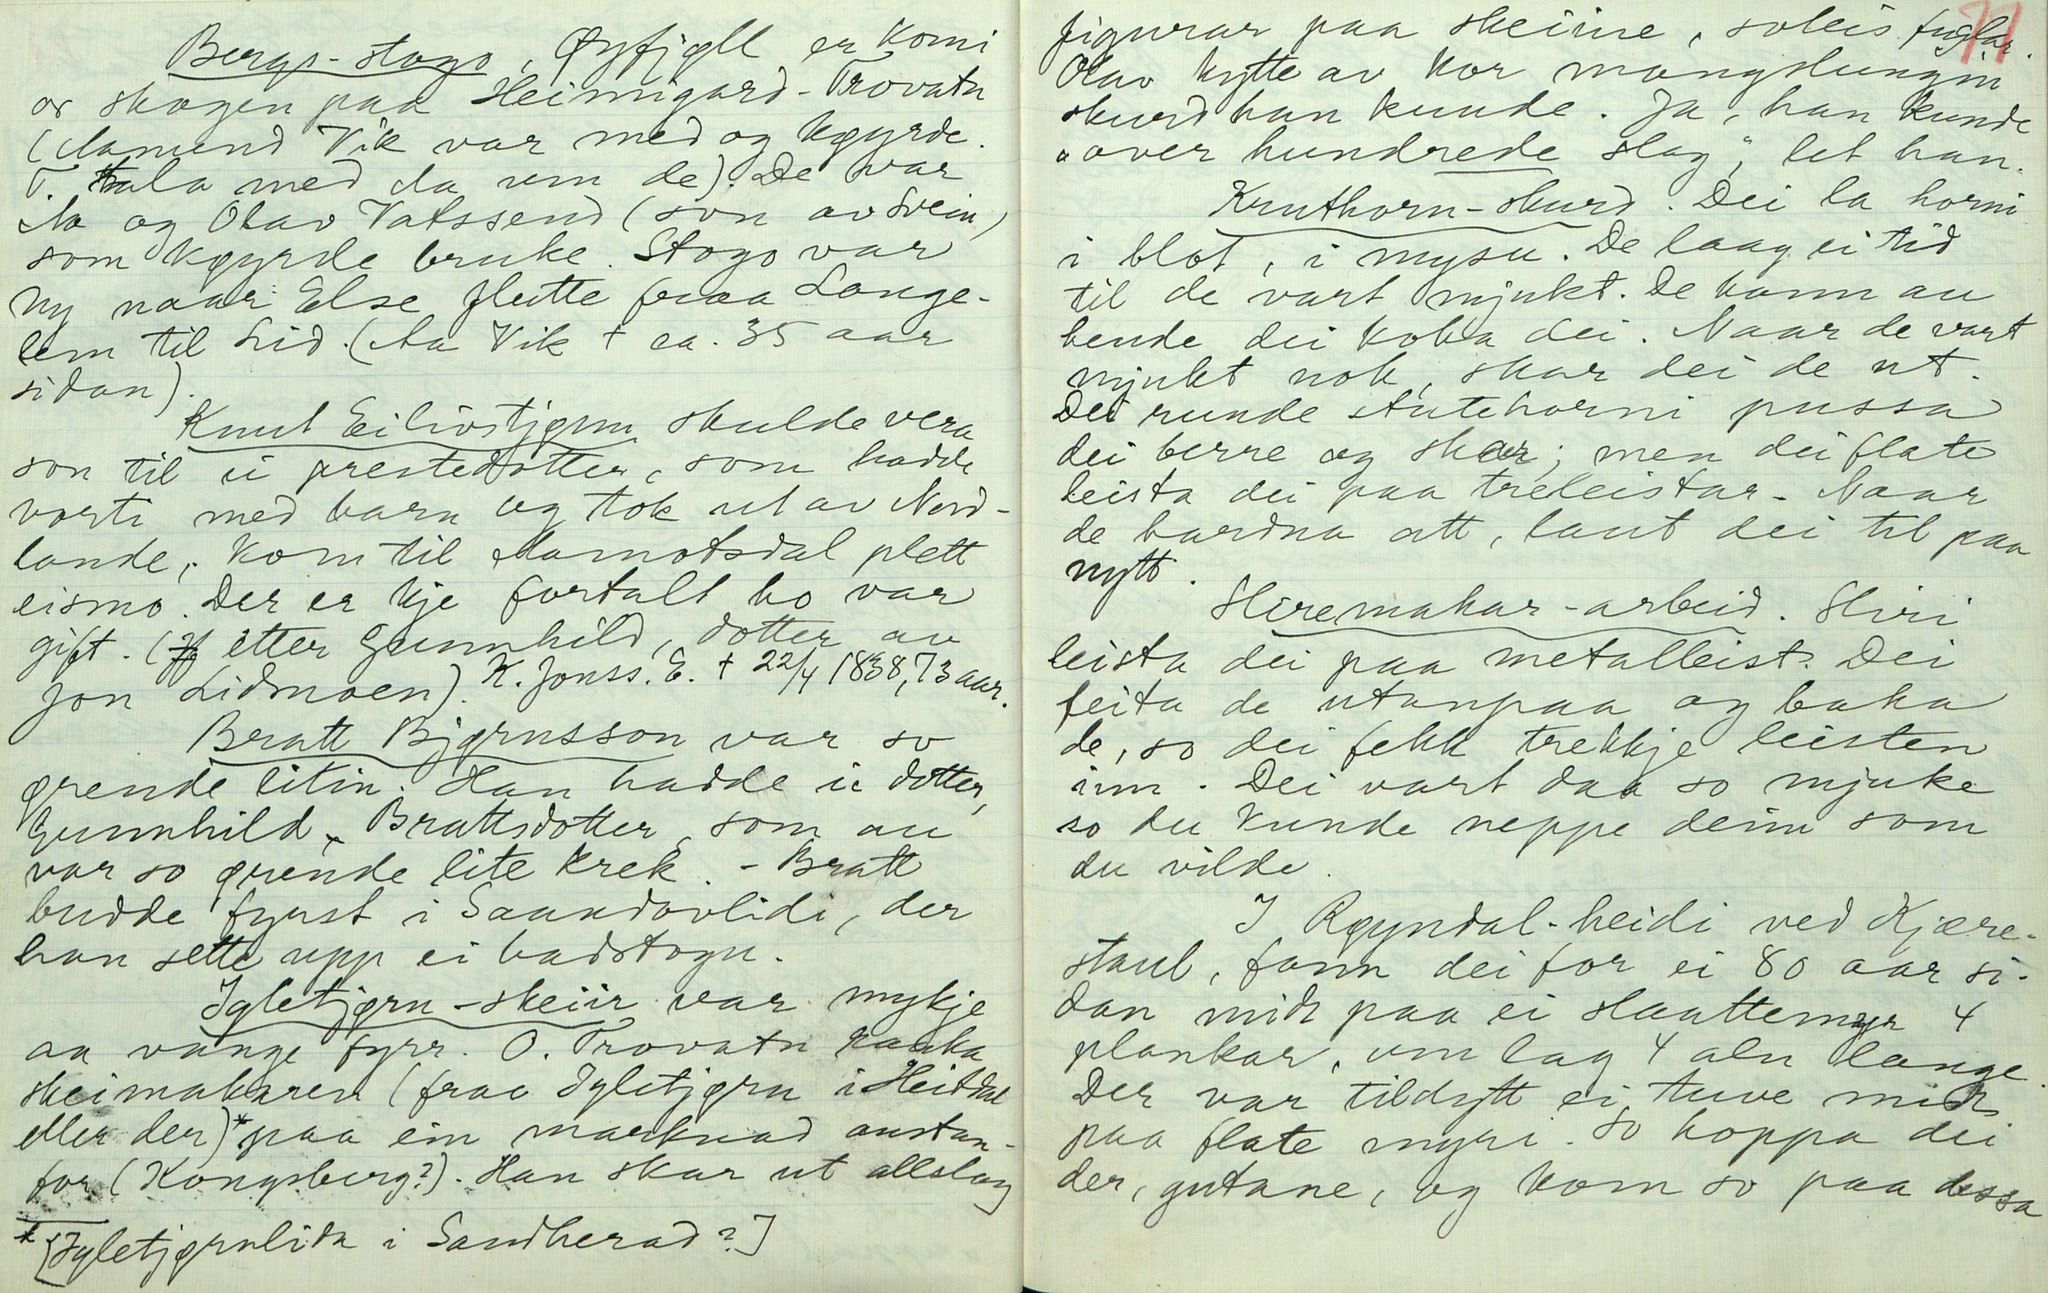 Bergs-stogo, Øyfjøll er komi
or skogen paa Heimigard-Trovatn
(Aamund Vik var med og kjøyrde.
T. tala med da um de). De var
Aa og Olav Vatssend (son av Svein)
som kjøyrde bruke. Stogo var
ny naar Else flutte fraa Lange-
lem til Lid. (Aa Vik † ca. 35 aar
sidan).
Knut Eilivstjønn skulde vera
son til ei prestedotter, som hadde
vorti med barn og tok ut av Nord-
lande, kom til Aamotsdal plett
eismo. Der er kje fortalt ho var
gift. (etter Gunnhild, dotter av
Jon Lidmoen). K. Jonss. E. † 22/4 1838, 73 aar.
Bratt Bjørnsson var so
grende litin. Han hadde ei dotter,
Gunnhild Brattsdotter, som au
var so grende lite krek. - Bratt
budde fyrst i Saandovlidi, der
han sette upp ei badstogu.
Igletjørn-skeiir var mykje
aa vange fyrr. O. Trovatn raaka
skeimakaren (fraa Igletjørn i Heitdal
eller der)* paa ein marknad austan-
for (Kongsberg?). Han skar ut allslag
* [Igletjørnlida i Sandherad?]
77
figurar paa skeiine, soleis fuglar.
Olav kytte av kor mangslungin
skurd han kunde. Ja, han kunde
"over hundrede slag", let han.
Kruthorn-skurd. Dei la horni
i blot, i mysu. De laag ei tid
til de vart mjukt. De kann au
hende dei koka dei. Naar de vart
mjukt nok, skar dei de ut.
Dei runde stutehorni pussa
dei berre og skar; men dei flate
leista dei paa treleistar. Naar
de hardna att, laut dei til paa
nytt.
Sliremakar-arbeid. Sliri
leista dei paa metalleist. Dei
feita de utanpaa og baka
de, so dei fekk trekkje leisten
inn. Dei vart daa so mjuke
so du kunde neppe deim som
du vilde.
I Røyndal-heidi ved Kjære-
staul, fann dei for ei 80 aar si-
dan midt paa ei slaattemyr 4
plankar, um lag 4 aln lange.
Der var tildytt ei tuve midt
paa flate myri. So hoppa dei
der, gutane, og kom so paa dessa